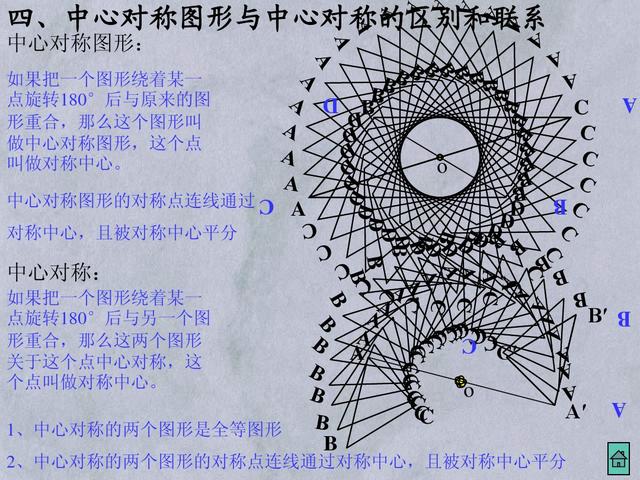 四、中心对称图形与中心对称的区别和联系
中心对称图形：
如果把一个图形绕着某一
点旋转180°后与原来的图
形重合，那么这个图形叫
做中心对称图形，这个点
叫做对称中心。
中心对称图形的对称点连线通过
对称中心，且被对称中心平分
中心对称：
如果把一个图形绕着某一
点旋转180°后与另一个图
形重合，那么这两个图形
关于这个点中心对称，这
个点叫做对称中心。
1、中心对称的两个图形是全等图形
2、中心对称的两个图形的对称点连线通过对称中心，且被对称中心平分
D
A
C
B
O
B′
B
C
O
A′
A
B